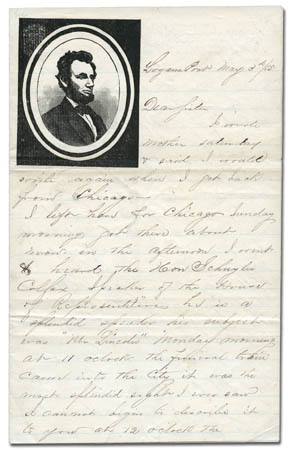 Logansport May 3rd /65
Dear Sister
I wrote
mother saturday
& said I would
write again when I got back
from Chicago
I left here for Chicago Sunday
morning got there about
noon in the afternoon I went
& heard the Hon Schuyler
Colfax speaker of the House
of Representatives he is a
splendid speaker his subject
was "Mr Lincoln" Monday morning
at 11 oclock the funeral train
came into the City it was the
most splendid sight I ever saw
I cannot begin to describe it
to you at 12 oclock the